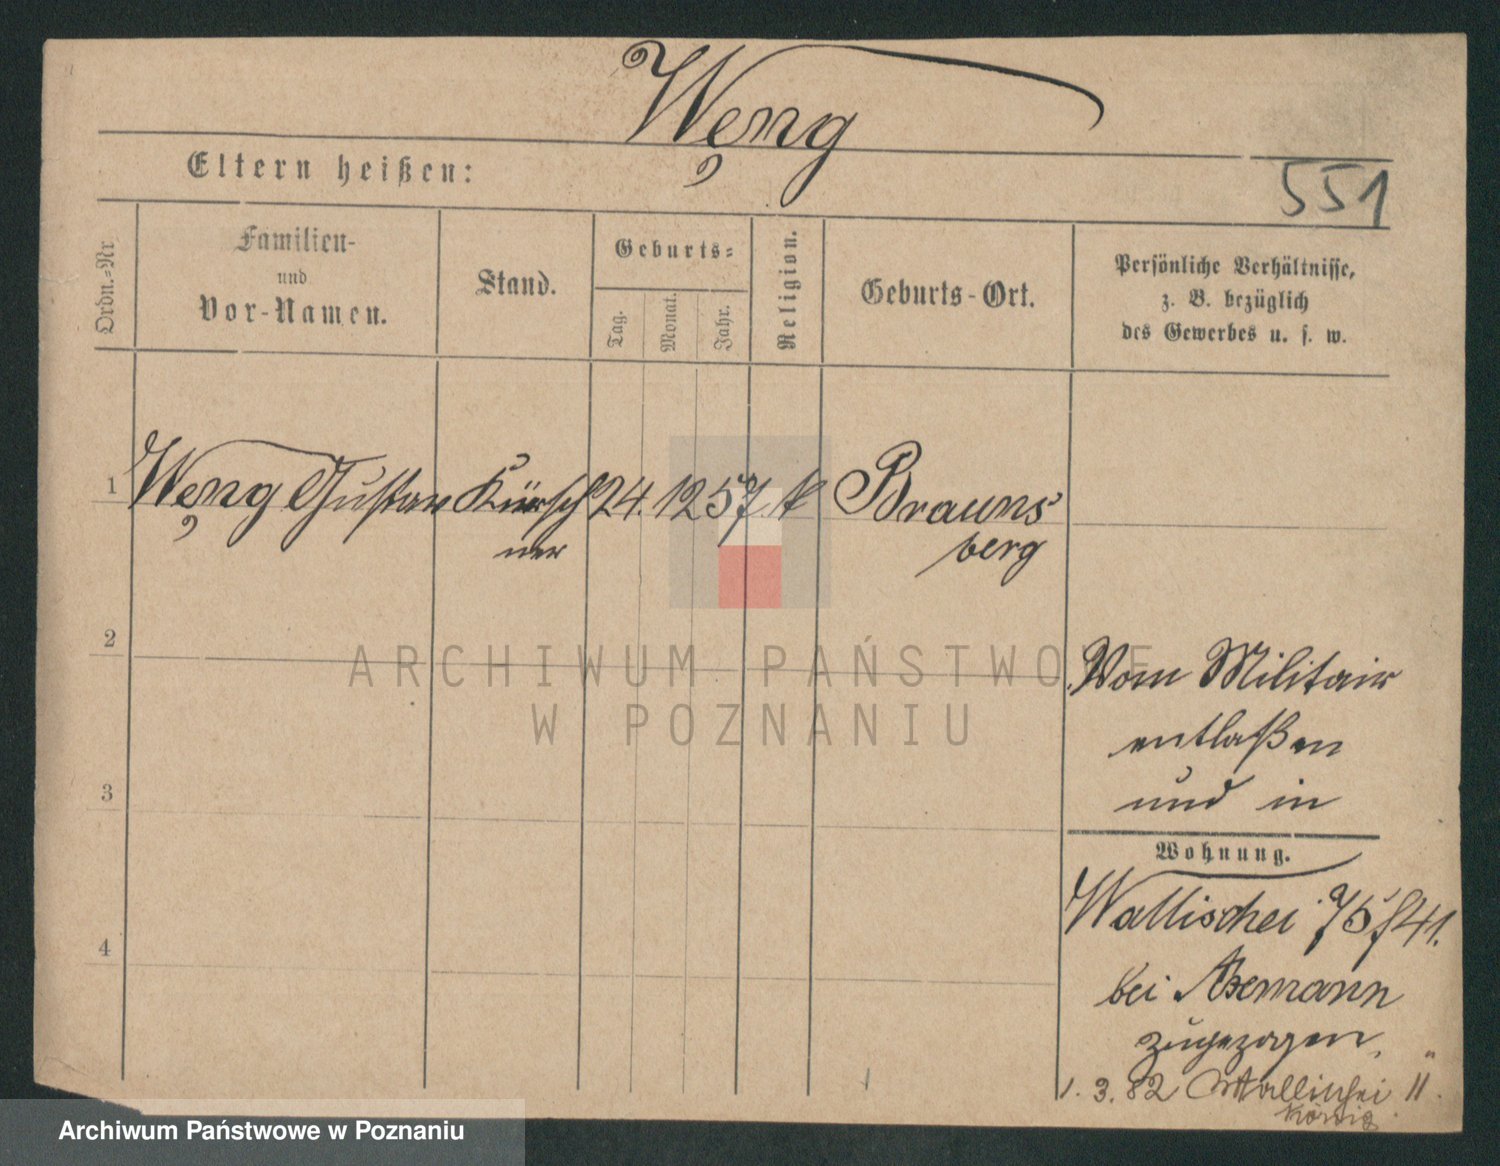 Weng
Eltern heißen:
551
Ordn.-Nr.
Familien-
und
Vor-Namen.
Stand.
Geburts-
Tag.
Monat.
Jahr.
Religion.
Geburts-Ort.
Persönliche Verhältnisse,
z. B. bezüglich
des Gewerbes u. s. w.
1 Weng Gustav Kürsch 24. 12 57. k Brauns
ner berg
2
ARCHIWUM PAŃSTWOWE
W POZNANIU
Vom Militair
entlaßen
und in
3
Wohnung.
Wallischei 75/41.
4
bei
zugezogen.
1. 3. 82 Wallischei 11.
König
Archiwum Państwowe w Poznaniu